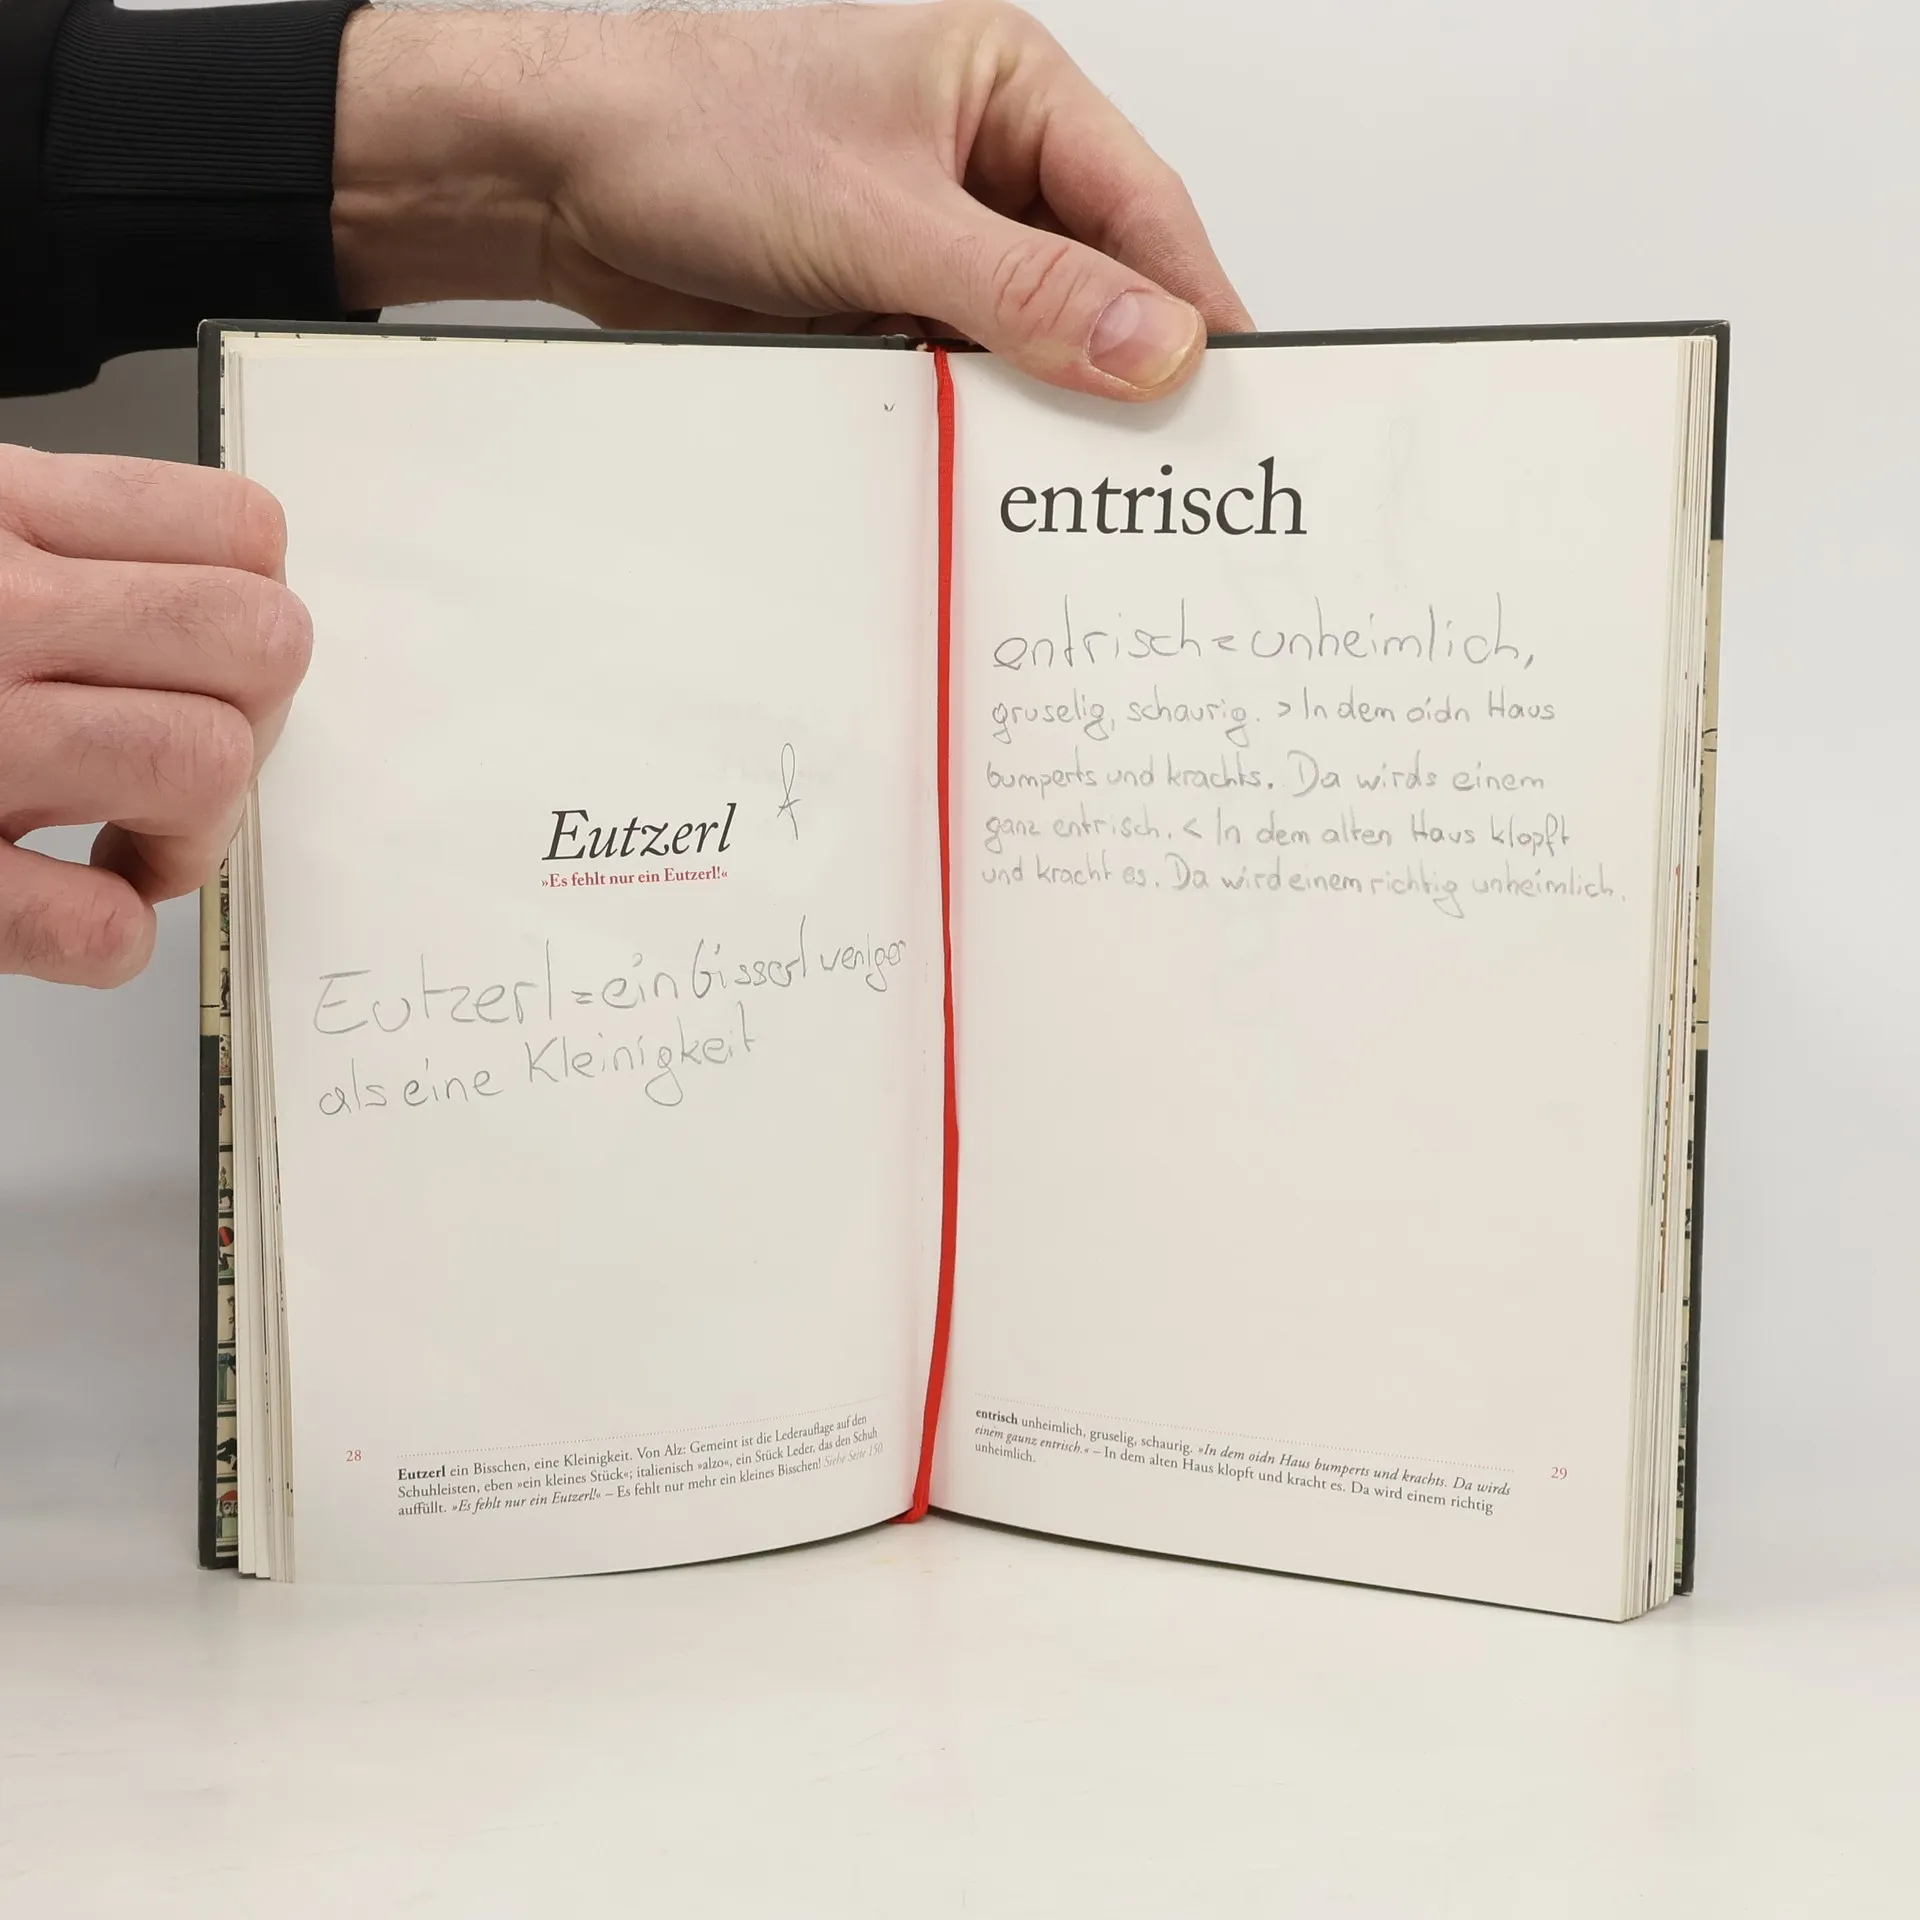 Eutzerl
»Es fehlt nur ein Eutzerl!«
Eutzerl = ein bisserl weniger
als eine Kleinigkeit
28
Eutzerl ein Bisschen, eine Kleinigkeit. Von Alz: Gemeint ist die Lederauflage auf den
Schuhleisten, eben »ein kleines Stück«; italienisch »alzo«, ein Stück Leder, das den Schuh
auffüllt. »Es fehlt nur ein Eutzerl!« – Es fehlt nur mehr ein kleines Bisschen! Siehe Seite 150
entrisch
entrisch = unheimlich,
gruselig, schaurig. > In dem oidn Haus
bumperts und krachts. Da wirds einem
ganz entrisch. < In dem alten Haus klopft
und kracht es. Da wird einem richtig unheimlich.
entrisch unheimlich, gruselig, schaurig. »In dem oidn Haus bumperts und krachts. Da wirds
einem gaunz entrisch.« – In dem alten Haus klopft und kracht es. Da wird einem richtig
unheimlich.
29